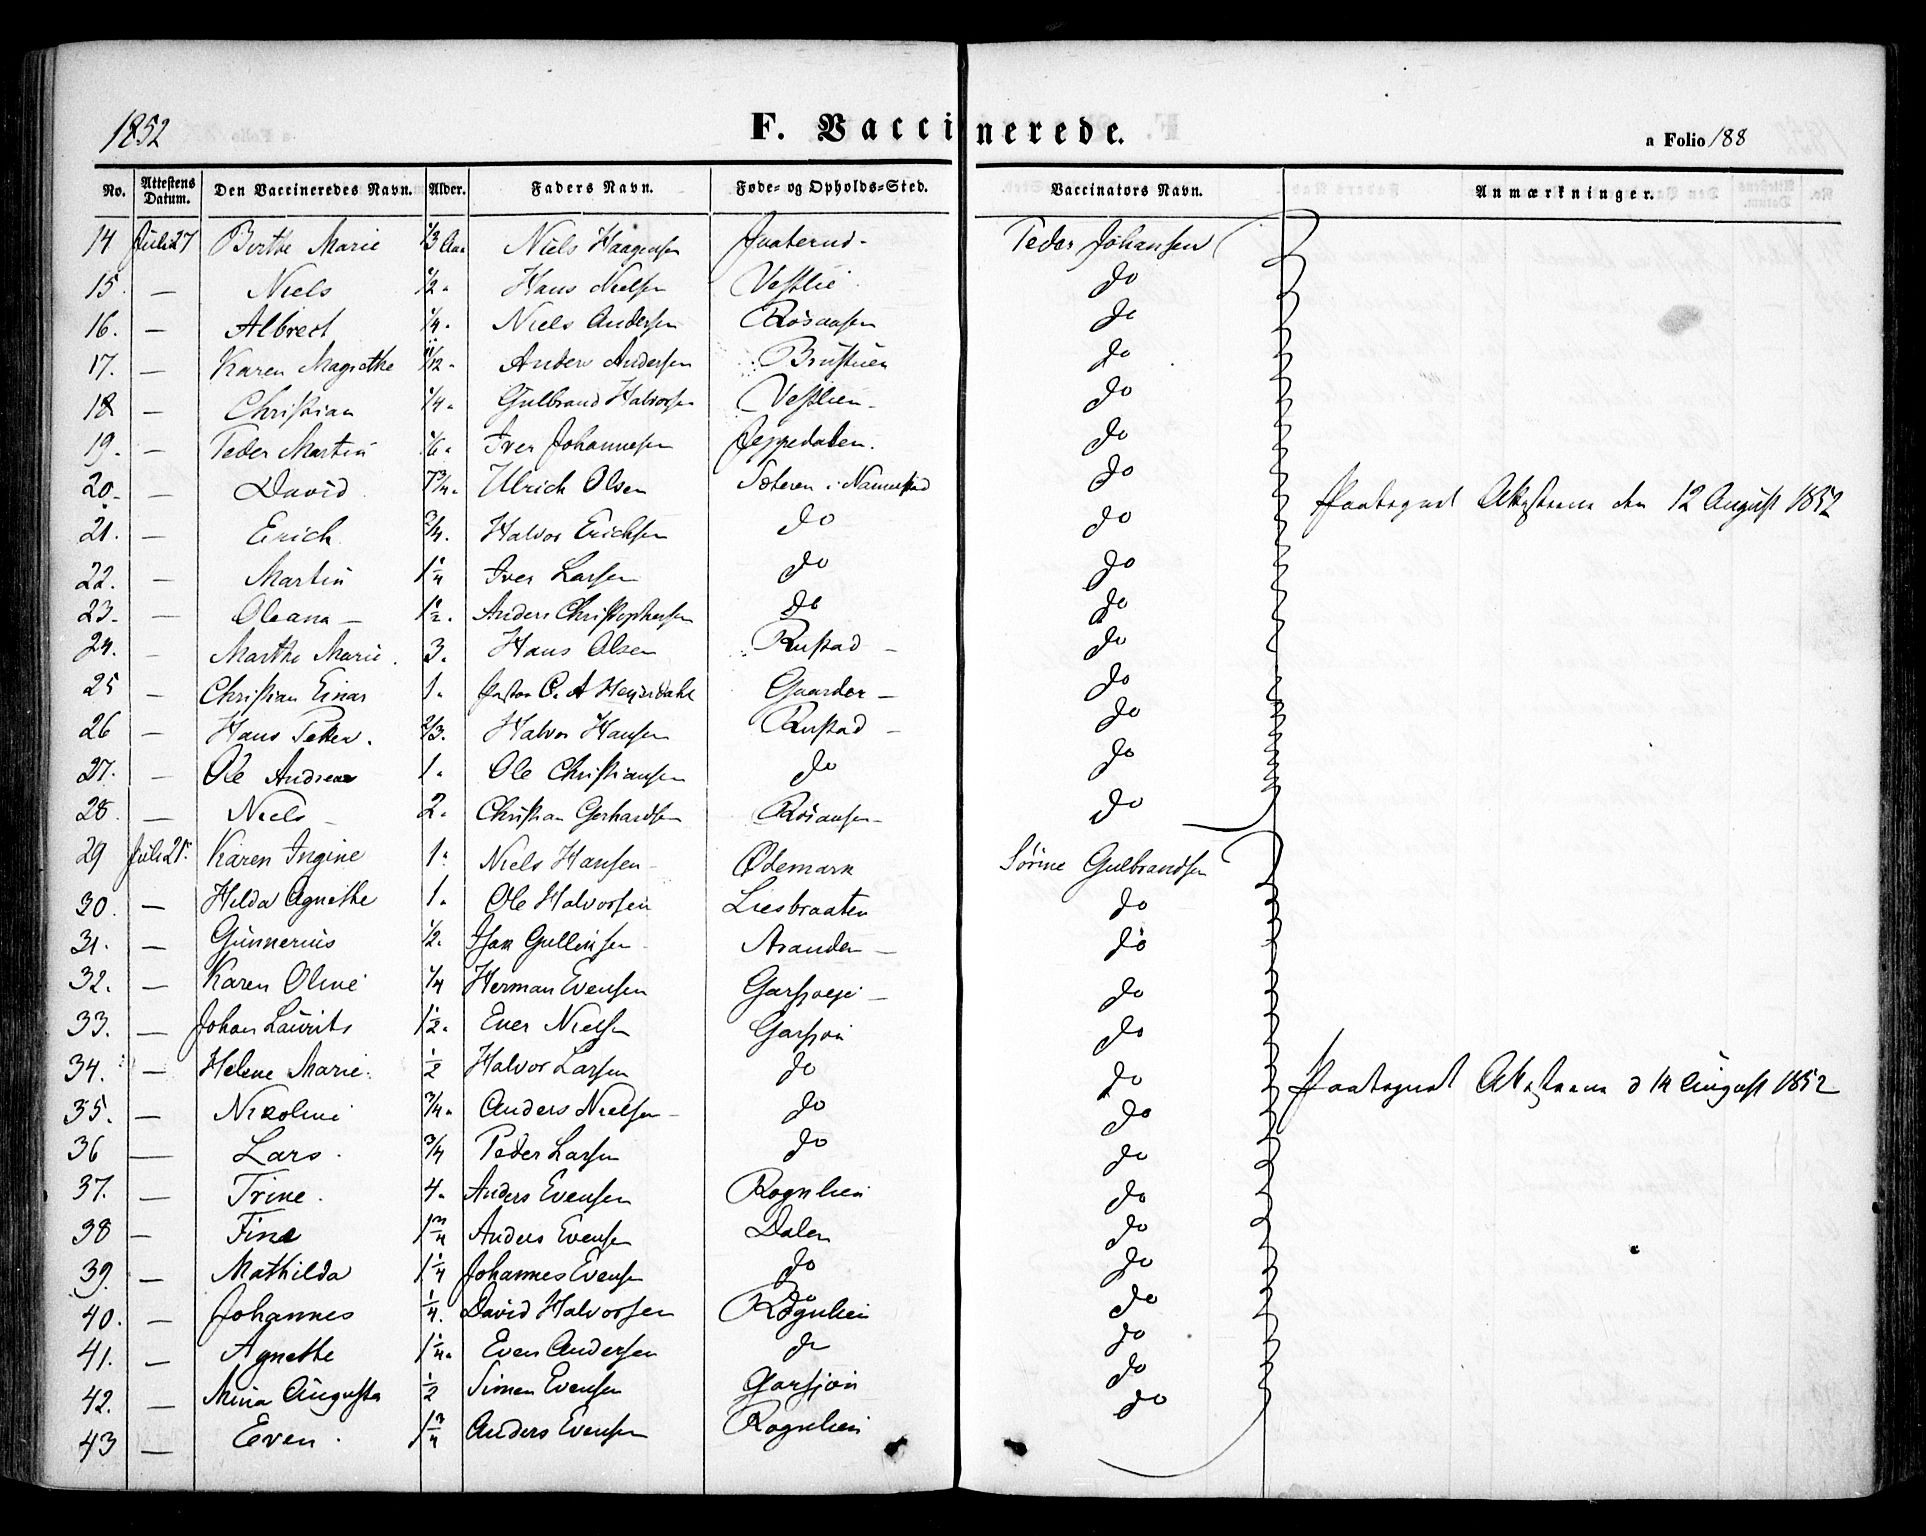 1852 F. Vaccinerede. a Folio 188
No. Attestens Datum. Den Vaccineredes Navn. Alder. Faders Navn. Føde- og Opholds-Sted. Vaccinators Navn. Anmærkninger.
14 Juli 27 Berthe Marie 1/3 Aar Niels Haagensen Jaaterud - Peder Johansen
15. — Niels 1/2 " Hans Nielsen Vestlie do
16. — Albrect 1/4 " Niels Andersen Rösaasen do
17. — Karen Magrethe 11/12 " Anders Andersen Brustuen do
18 — Christian 1/4 " Gulbrand Halvorsen Vestlien - do
19. — Peder Martin 1/6 " Iver Johannesen Jeppedalen. do
20. — David 7 3/4 " Ulrich Olsen Sæteren i Nannestad do Paategnet Attesterne den 12 August 1852
21. — Erich 3/4. Halvor Erichsen do do
22. — Martin 1 1/4 Iver Larsen do do
23. — Oleana — 1 1/2. Anders Christophersen do do
24. — Marthe Marie. 3. Hans Olsen Rustad — do
25 — Christian Einar 1. Pastor C. A Heyerdahl Gaarder — do
26 — Hans Petter. 2/3. Halvor Hansen Rustad — do
27. — Ole Andreas 1. Ole Christiansen do do
28. — Niels — 2. Christian Gerhardsen Rösaasen — do
29 Juli 21. Karen Ingine 1. Niels Hansen — Ødemark Sørine Gulbrandsen
30. — Helda Agnethe 1. Ole Halvorsen Liesbraaten do
31. — Gunnerius 1/2. Isak Gullinsen Aranden — do
32. — Karen Oline 1/4 Herman Evensen Garsjoeje — do
33. — Johan Laurits 1 1/2. Ever Nielsen Garsjøn do
34. — Helene Marie. 1/2 Halvor Larsen do do Paategnet Attesterne d 14 August 1852
35. — Nicoline 3/4. Anders Nielsen — do do
36 — Lars. 3/4 Peder Larsen do do
37. — Trine. 4. Anders Evensen Rognlien do
38 — Fine 1 3/4 Anders Evensen Dalen do
39. — Mathilda 1 1/4 Johannes Evensen do do
40. — Johannes 1/4. David Halvorsen Rognlien do
41. — Agnethe 1 1/4. Even Andersen do do
42. — Mina Augusta 1/2 Simen Evensen Garsjøn do
43 — Even. 1 3/4 Anders Evensen Rognlien do